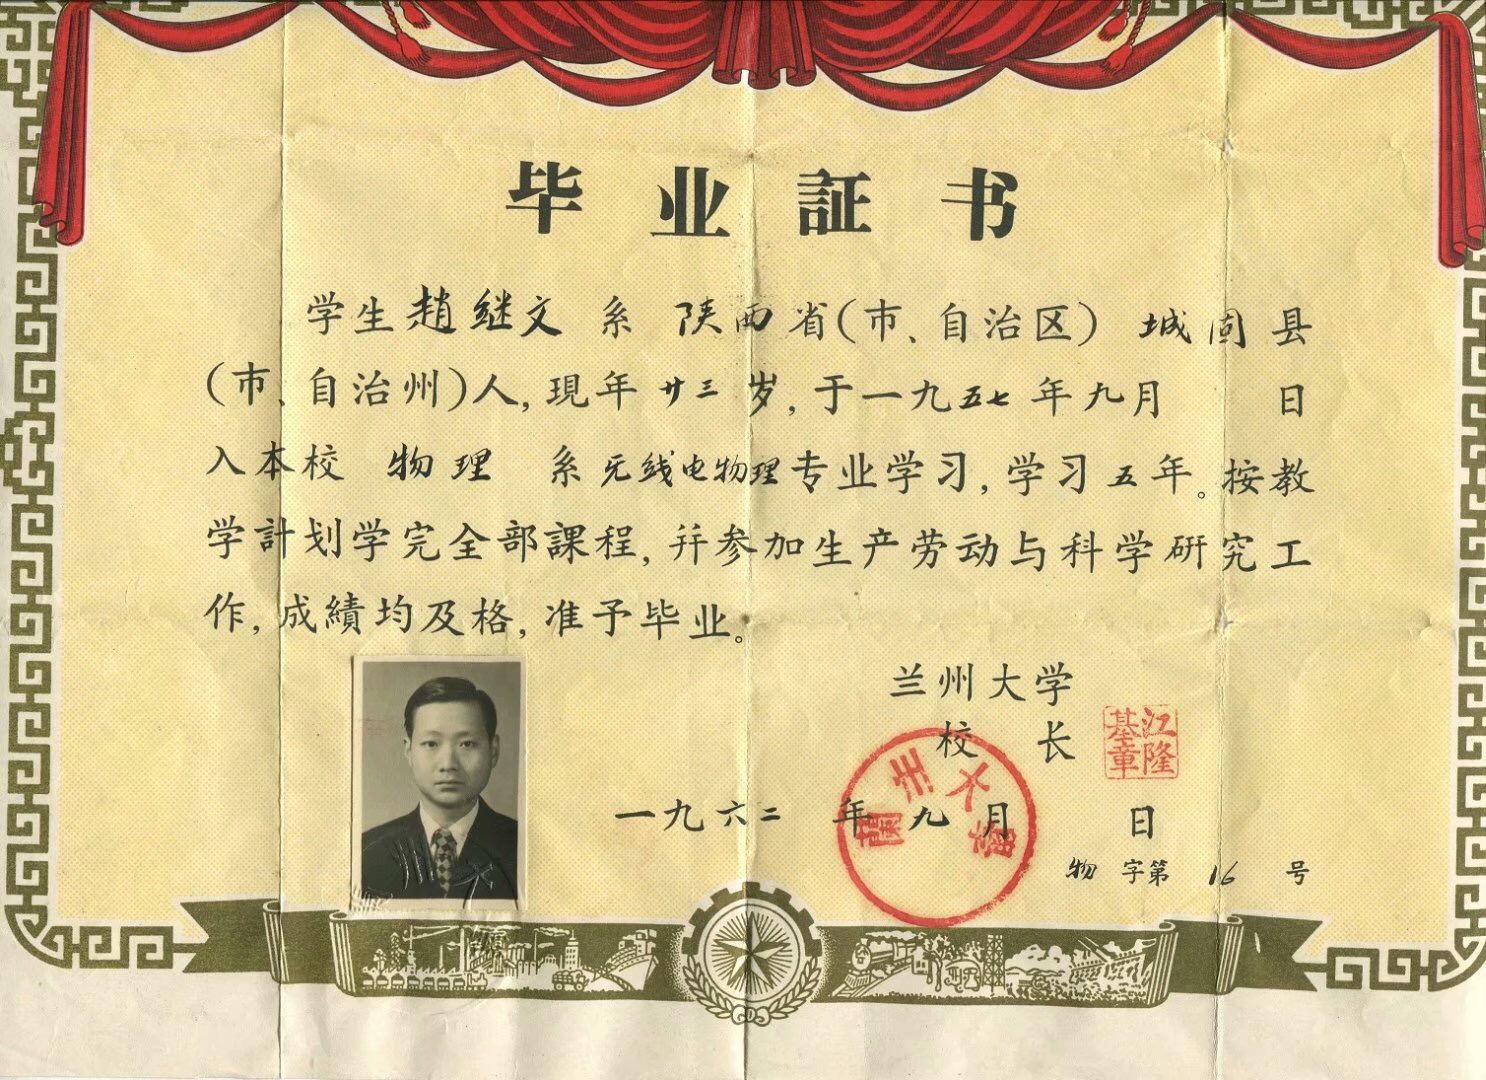 毕业証书
学生趙继文系陕西省(市、自治区)城固县
(市、自治州)人,現年廿三岁,于一九五七年九月 日
入本校 物理 系无线电物理专业学习,学习五年。按教
学計划学完全部課程,幷参加生产劳动与科学研究工
作,成績均及格,准予毕业。
兰州大学
校 长
江隆
基章
一九六二 年九月 日
蘭州大學
物字第 16 号
州大